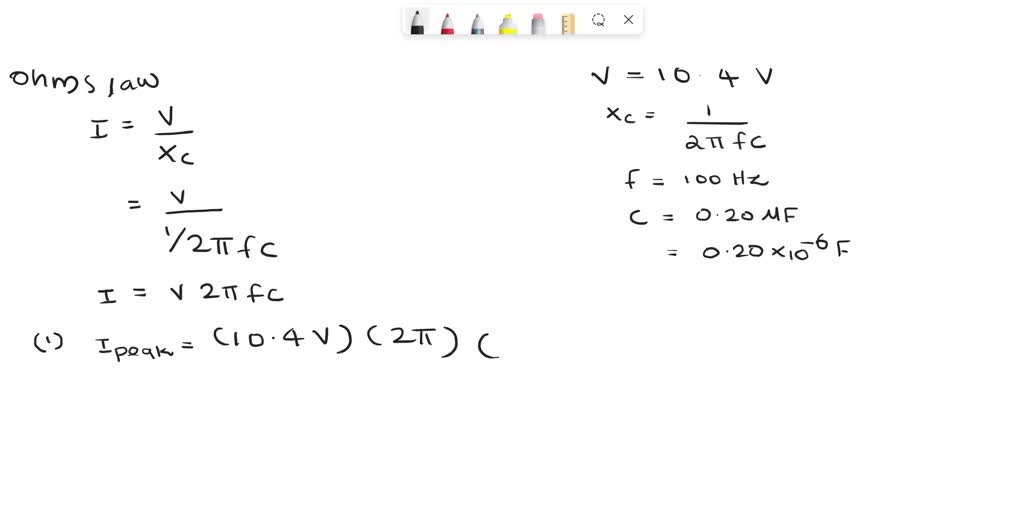 Ohms law
I = V / Xc
= V / 1/2π fc
I = V 2π fc
(1) Ipeak = (10.4 V) (2π) (
V = 10.4 V
Xc = 1 / 2π fc
f = 100 Hz
C = 0.20 μF
= 0.20 × 10⁻⁶ F